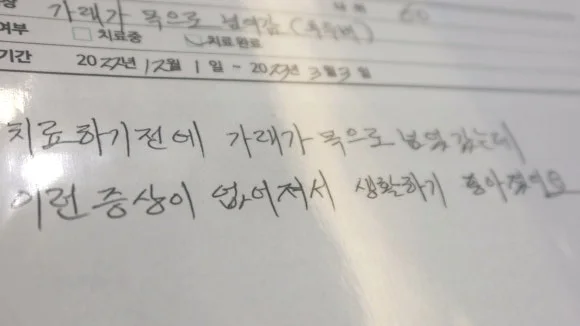 가래가 목으로 넘어감 (후비루) 60
여부 치료중 치료완료
기간 2022년 12월 1일 ~ 2023년 3월 3일
치료하기전에 가래가 목으로 넘어갔는데
이런 증상이 없어져서 생활하기 좋아졌어요